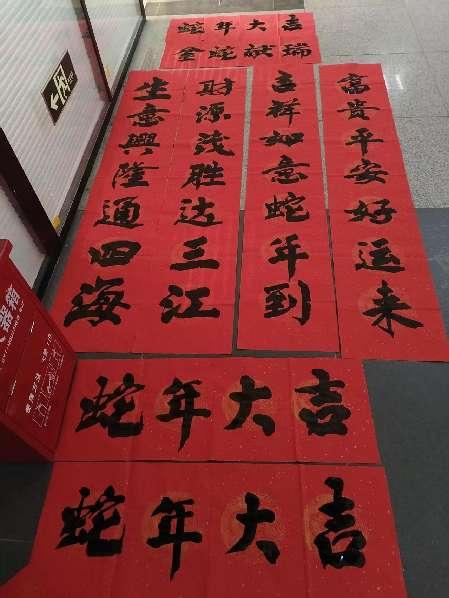 蛇年大吉
金蛇献瑞
生意興隆通四海
財源茂胜达三江
吉祥如意蛇年到
富貴平安好运来
蛇年大吉
蛇年大吉
器箱